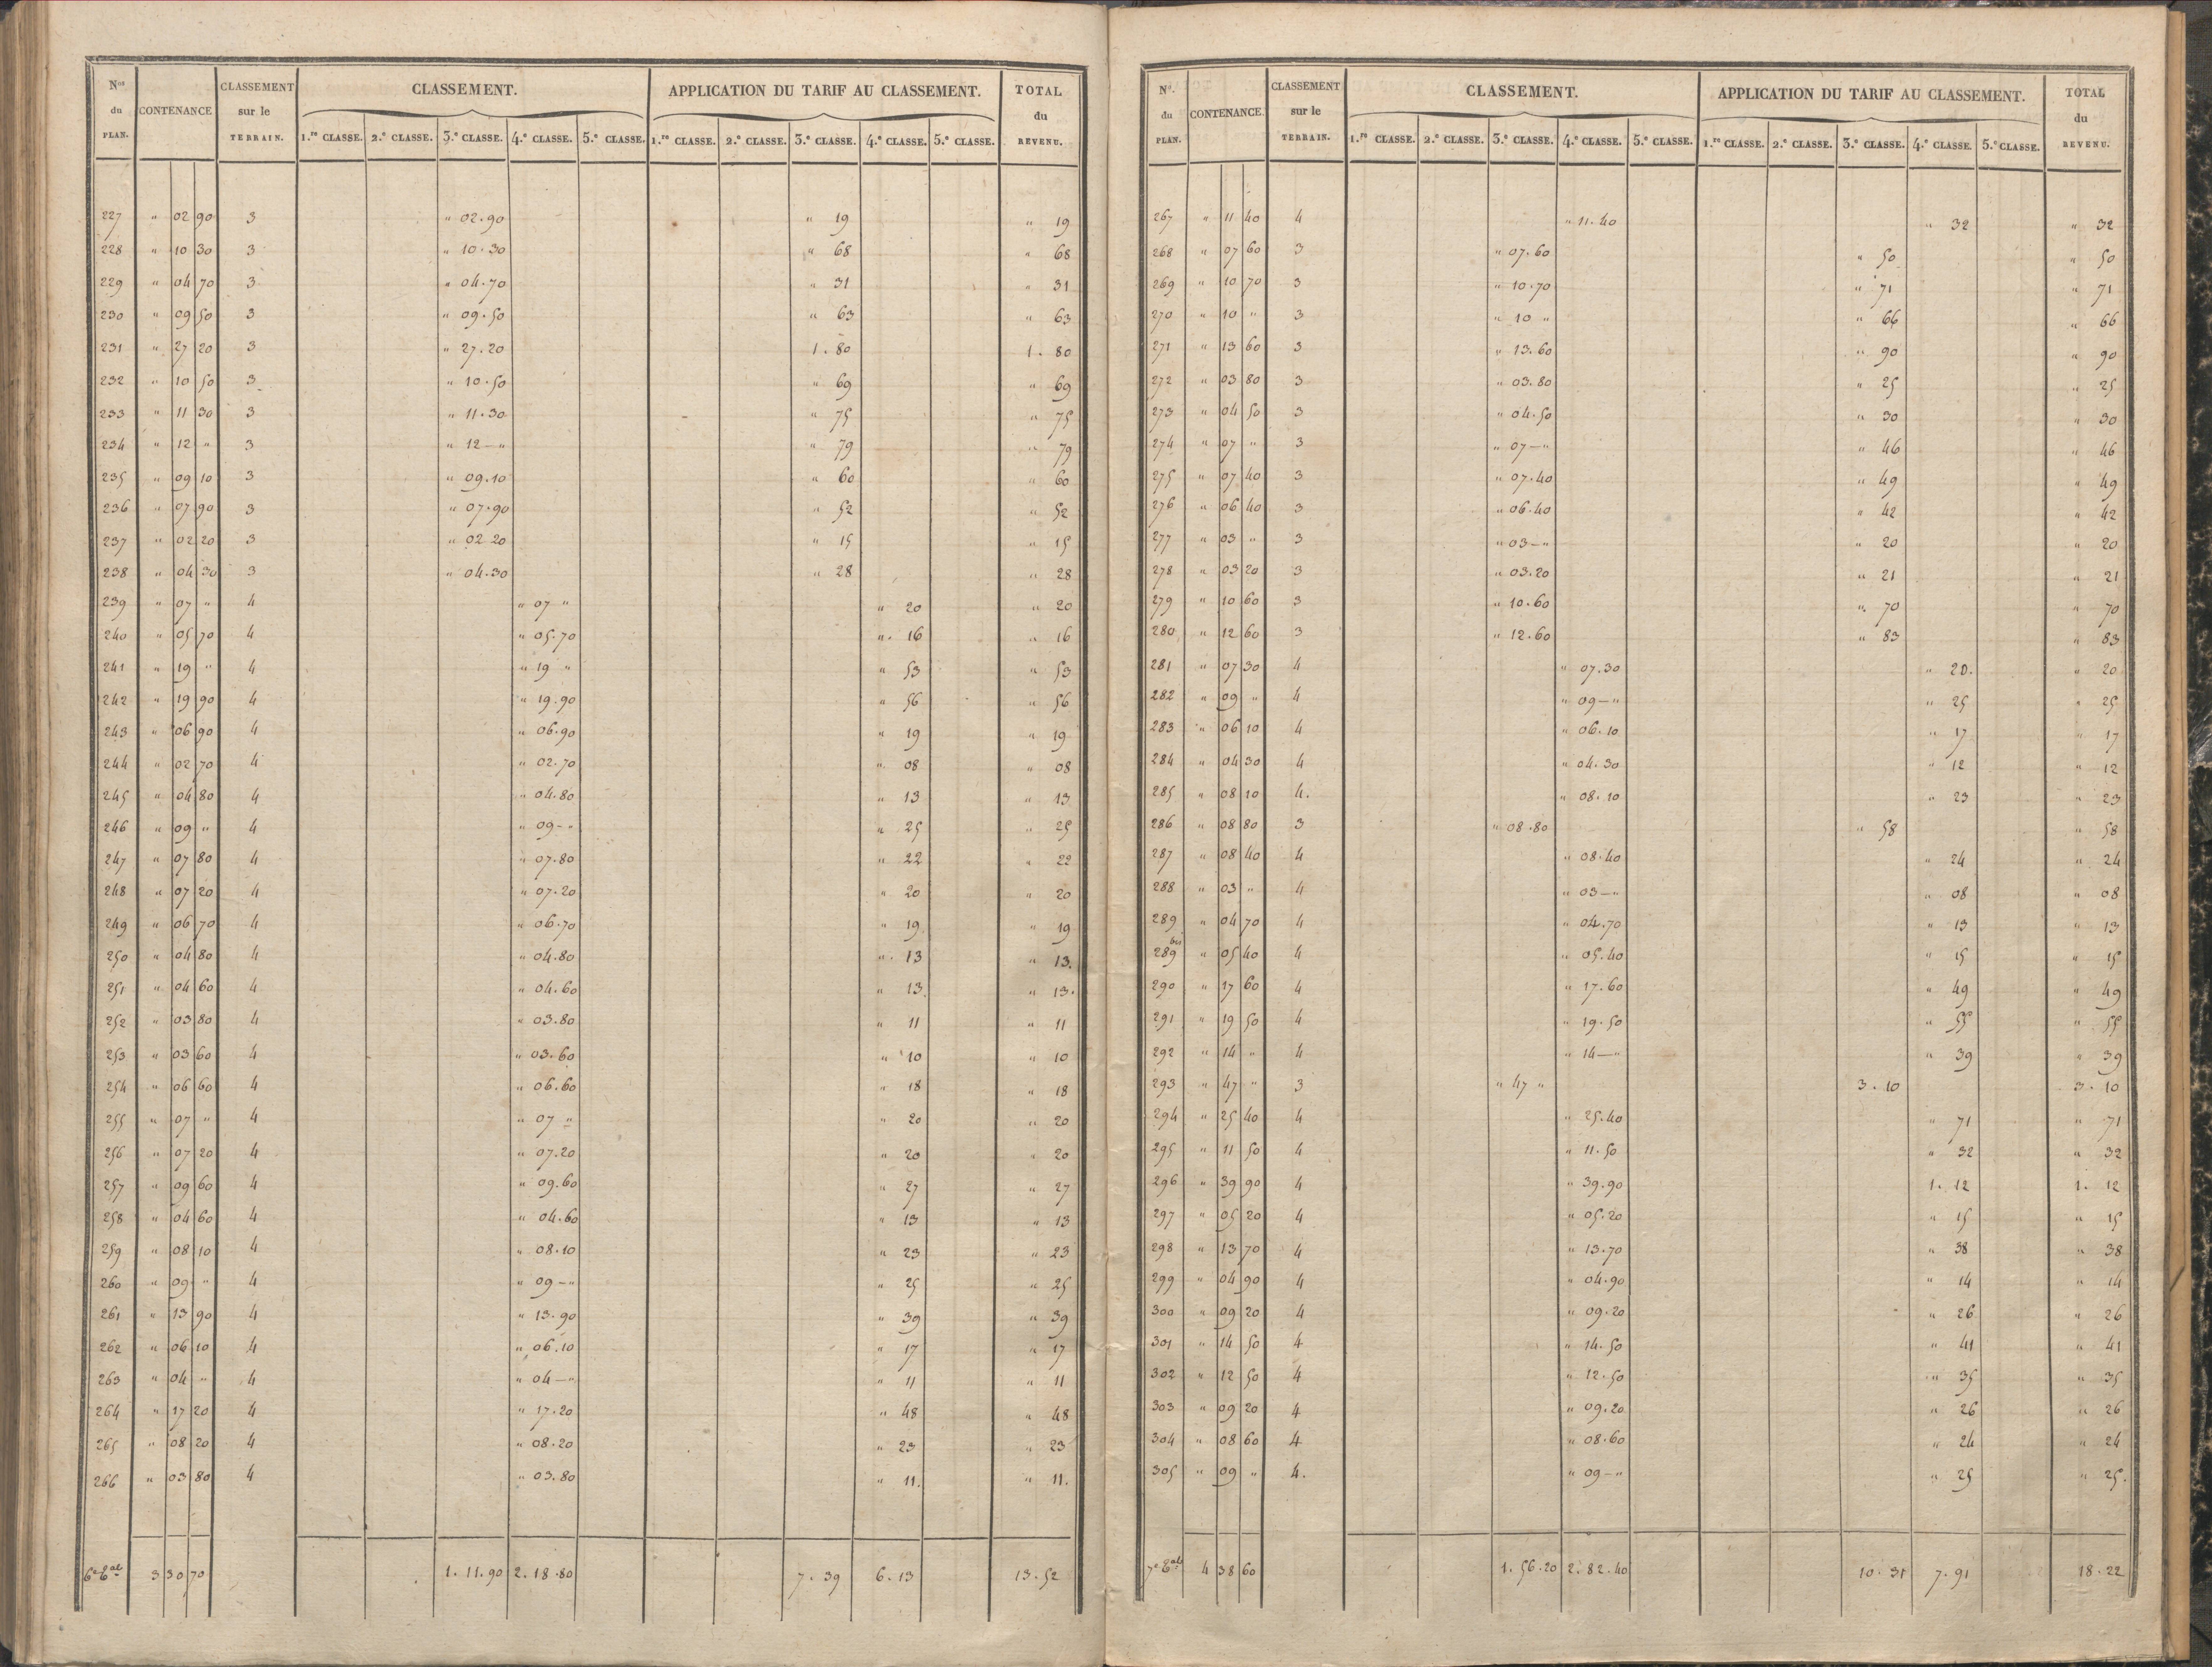 N.os du PLAN. CONTENANCE CLASSEMENT sur le TERRAIN. CLASSEMENT. APPLICATION DU TARIF AU CLASSEMENT. TOTAL du REVENU.
1.re CLASSE. 2.e CLASSE. 3.e CLASSE. 4.e CLASSE. 5.e CLASSE. 1.re CLASSE. 2.e CLASSE. 3.e CLASSE. 4.e CLASSE. 5.e CLASSE.
227 " 02 90 3 " 02.90 " 19 " 19
228 " 10 30 3 " 10.30 " 68 " 68
229 " 04 70 3 " 04.70 " 31 " 31
230 " 09 50 3 " 09.50 " 63 " 63
231 " 27 20 3 " 27.20 1. 80 1. 80
232 " 10 50 3 " 10.50 " 69 " 69
233 " 11 30 3 " 11.30 " 75 " 75
234 " 12 " 3 " 12 — " " 79 " 79
235 " 09 10 3 " 09.10 " 60 " 60
236 " 07 90 3 " 07.90 " 52 " 52
237 " 02 20 3 " 02 20 " 15 " 15
238 " 04 30 3 " 04.30 " 28 " 28
239 " 07 " 4 " 07 " " 20 " 20
240 " 05 70 4 " 05.70 " 16 " 16
241 " 19 " 4 " 19 " " 53 " 53
242 " 19 90 4 " 19.90 " 56 " 56
243 " 06 90 4 " 06.90 " 19 " 19
244 " 02 70 4 " 02.70 " 08 " 08
245 " 04 80 4 " 04.80 " 13 " 13
246 " 09 " 4 " 09 - " " 25 " 25
247 " 07 80 4 " 07.80 " 22 " 22
248 " 07 20 4 " 07.20 " 20 " 20
249 " 06 70 4 " 06.70 " 19 " 19
250 " 04 80 4 " 04.80 " 13 " 13.
251 " 04 60 4 " 04.60 " 13. " 13.
252 " 03 80 4 " 03.80 " 11 " 11
253 " 03 60 4 " 03.60 " 10 " 10
254 " 06 60 4 " 06.60 " 18 " 18
255 " 07 " 4 " 07 " " 20 " 20
256 " 07 20 4 " 07.20 " 20 " 20
257 " 09 60 4 " 09.60 " 27 " 27
258 " 04 60 4 " 04.60 " 13 " 13
259 " 08 10 4 " 08.10 " 23 " 23
260 " 09 " 4 " 09 — " " 25 " 25
261 " 13 90 4 " 13.90 " 39 " 39
262 " 06 10 4 " 06.10 " 17 " 17
263 " 04 " 4 " 04 — " " 11 " 11
264 " 17 20 4 " 17.20 " 48 " 48
265 " 08 20 4 " 08.20 " 23 " 23
266 " 03 80 4 " 03.80 " 11. " 11.
6e tal 3 30 70 1. 11. 90 2. 18. 80 7. 39 6. 13 13. 52
N.o du PLAN. CONTENANCE. CLASSEMENT sur le TERRAIN. CLASSEMENT. APPLICATION DU TARIF AU CLASSEMENT. TOTAL du REVENU.
1.re CLASSE. 2.e CLASSE. 3.e CLASSE. 4.e CLASSE. 5.e CLASSE. 1.re CLASSE. 2.e CLASSE. 3.e CLASSE. 4.e CLASSE. 5.e CLASSE.
267 " 11 40 4 " 11.40 " 32 " 32
268 " 07 60 3 " 07.60 " 50 " 50
269 " 10 70 3 " 10.70 " 71 " 71
270 " 10 " 3 " 10 " " 66 " 66
271 " 13 60 3 " 13.60 " 90 " 90
272 " 03 80 3 " 03.80 " 25 " 25
273 " 04 50 3 " 04.50 " 30 " 30
274 " 07 " 3 " 07 — " " 46 " 46
275 " 07 40 3 " 07.40 " 49 " 49
276 " 06 40 3 " 06.40 " 42 " 42
277 " 03 " 3 " 03 — " " 20 " 20
278 " 03 20 3 " 03.20 " 21 " 21
279 " 10 60 3 " 10.60 " 70 " 70
280 " 12 60 3 " 12.60 " 83 " 83
281 " 07 30 4 " 07.30 " 20. " 20
282 " 09 " 4 " 09 — " " 25 " 25
283 " 06 10 4 " 06.10 " 17 " 17
284 " 04 30 4 " 04.30 " 12 " 12
285 " 08 10 4. " 08.10 " 23 " 23
286 " 08 80 3 " 08.80 " 58 " 58
287 " 08 40 4 " 08.40 " 24 " 24
288 " 03 " 4 " 03 — " " 08 " 08
289 " 04 70 4 " 04.70 " 13 " 13
289 bis " 05 40 4 " 05.40 " 15 " 15
290 " 17 60 4 " 17.60 " 49 " 49
291 " 19 50 4 " 19.50 " 55 " 55
292 " 14 " 4 " 14 — " " 39 " 39
293 " 47 " 3 " 47 " 3. 10 3. 10
294 " 25 40 4 " 25.40 " 71 " 71
295 " 11 50 4 " 11.50 " 32 " 32
296 " 39 90 4 " 39.90 1. 12 1. 12
297 " 05 20 4 " 05.20 " 15 " 15
298 " 13 70 4 " 13.70 " 38 " 38
299 " 04 90 4 " 04.90 " 14 " 14
300 " 09 20 4 " 09.20 " 26 " 26
301 " 14 50 4 " 14.50 " 41 " 41
302 " 12 50 4 " 12.50 " 35 " 35
303 " 09 20 4 " 09.20 " 26 " 26
304 " 08 60 4 " 08.60 " 24 " 24
305 " 09 " 4. " 09 — " " 25 " 25.
7e tal 4 38 60 1. 56. 20 2. 82. 40 10. 31 7. 91 18. 22